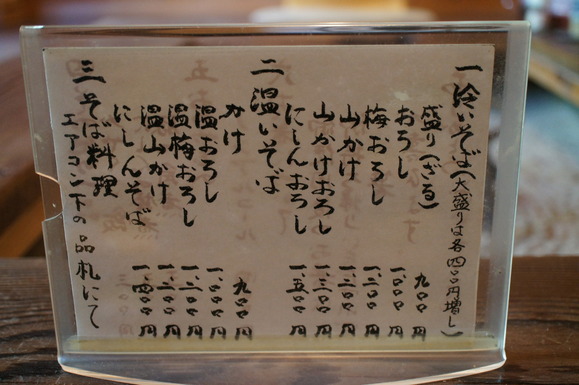 一 冷いそば(大盛りは各四〇〇円増し)
盛り(ざる) 九〇〇円
おろし 一、〇〇〇円
梅おろし 一、二〇〇円
山かけ 一、二〇〇円
山かけおろし 一、三〇〇円
にしんおろし 一、五〇〇円
二 温いそば
かけ 九〇〇円
温おろし 一、〇〇〇円
温梅おろし 一、二〇〇円
温山かけ 一、二〇〇円
にしんそば 一、四〇〇円
三 そば料理
エアコン下の品札にて